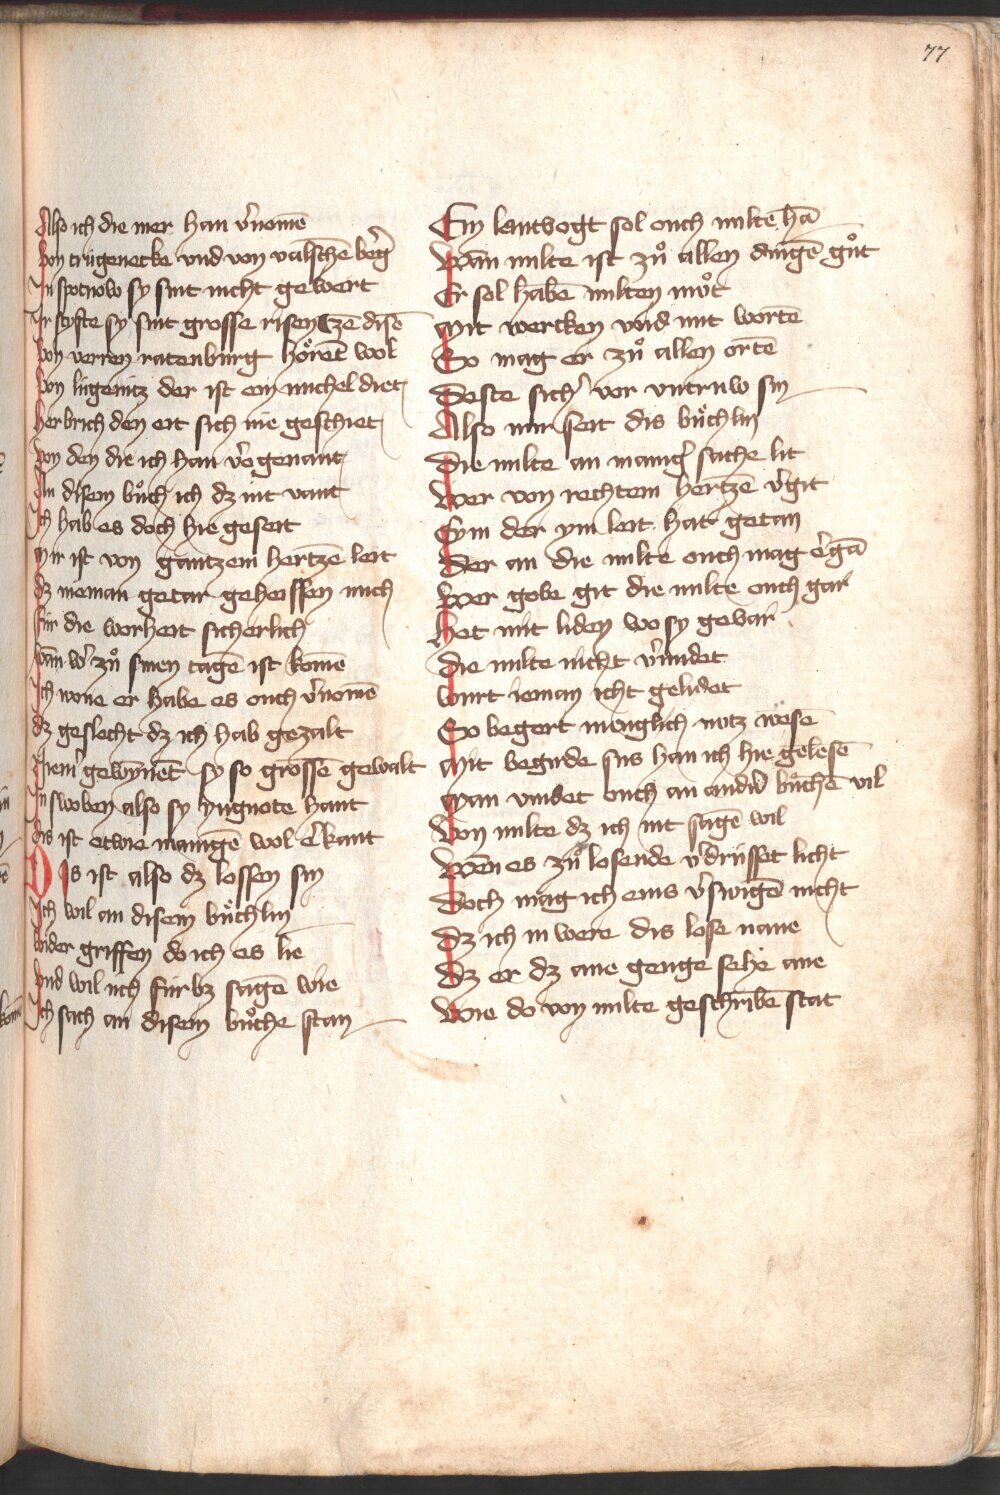 77
Also ich die mer han v̓nomē
Von trùgenecke vnd von valschē beg̓
In spotnow sy sint nicht gewert
Ir styfte sy sint grosse risen zē disē
Von verren ratenburg hoͤrēt wol
Von lùgenitz der ist ein michel diet
herbrich den ert sich nie geschiet
Von den die ich han v̓e genant
An disem buͦch ich dz nit vant
Ich hab es doch hie geseit
Mir ist von gantzem hertzē leit
dz nieman getar geheissen mich
für die worheit sicherlich
Wān w̓ zuͦ sinen tagē ist komē
Ich wone er habe es ouch v̓nomē
dz geslecht dz ich hab gezalt
gewynnēt sy so grossē gewalt
In swoben also sy hugnote hant
dis ist etwie manigē wol e̓kant
Dis ist also dz lossen sin
Ich wil an disem buͤchlin
wider griffen do ich es lie
Vnd wil uch fürbz sagē wie
Ich sach an disem buͦche stan
Ein lantvogt sol ouch miltē hā
Wān milte ist zuͦ allen dingē guͦt
Er sol habē milten muͦt
Mit wercken vnd mit wortē
So mag er zuͦ allen ortē
Deste sich̓ vor vntruw sin
Also nun seit dis buͤchlin
Die milte an manig̓ sache lit
Wer von rechtem hertzē v̓git
Eym der ym leit hat getan
Der an die milte ouch mag e̓gā
Wer gobe git die milte ouch gar
Het mit liden wo sy gevar
die milte nicht v̓midet
wurt ieman icht gelidet
So begert menglich nutz wesē
Mit begirde sus han ich hie gelesē
Man vindet ouch an and̓n buͤchē vil
Von milte dz ich nit sagē wil
Wēn es zuͦ losende v̓drüsset licht
Doch mag ich eins v̓swigē nicht
Dz ich in were dis lose nane
Dz er dz ane genge sehe ane
Wie do von milte geschribē stat